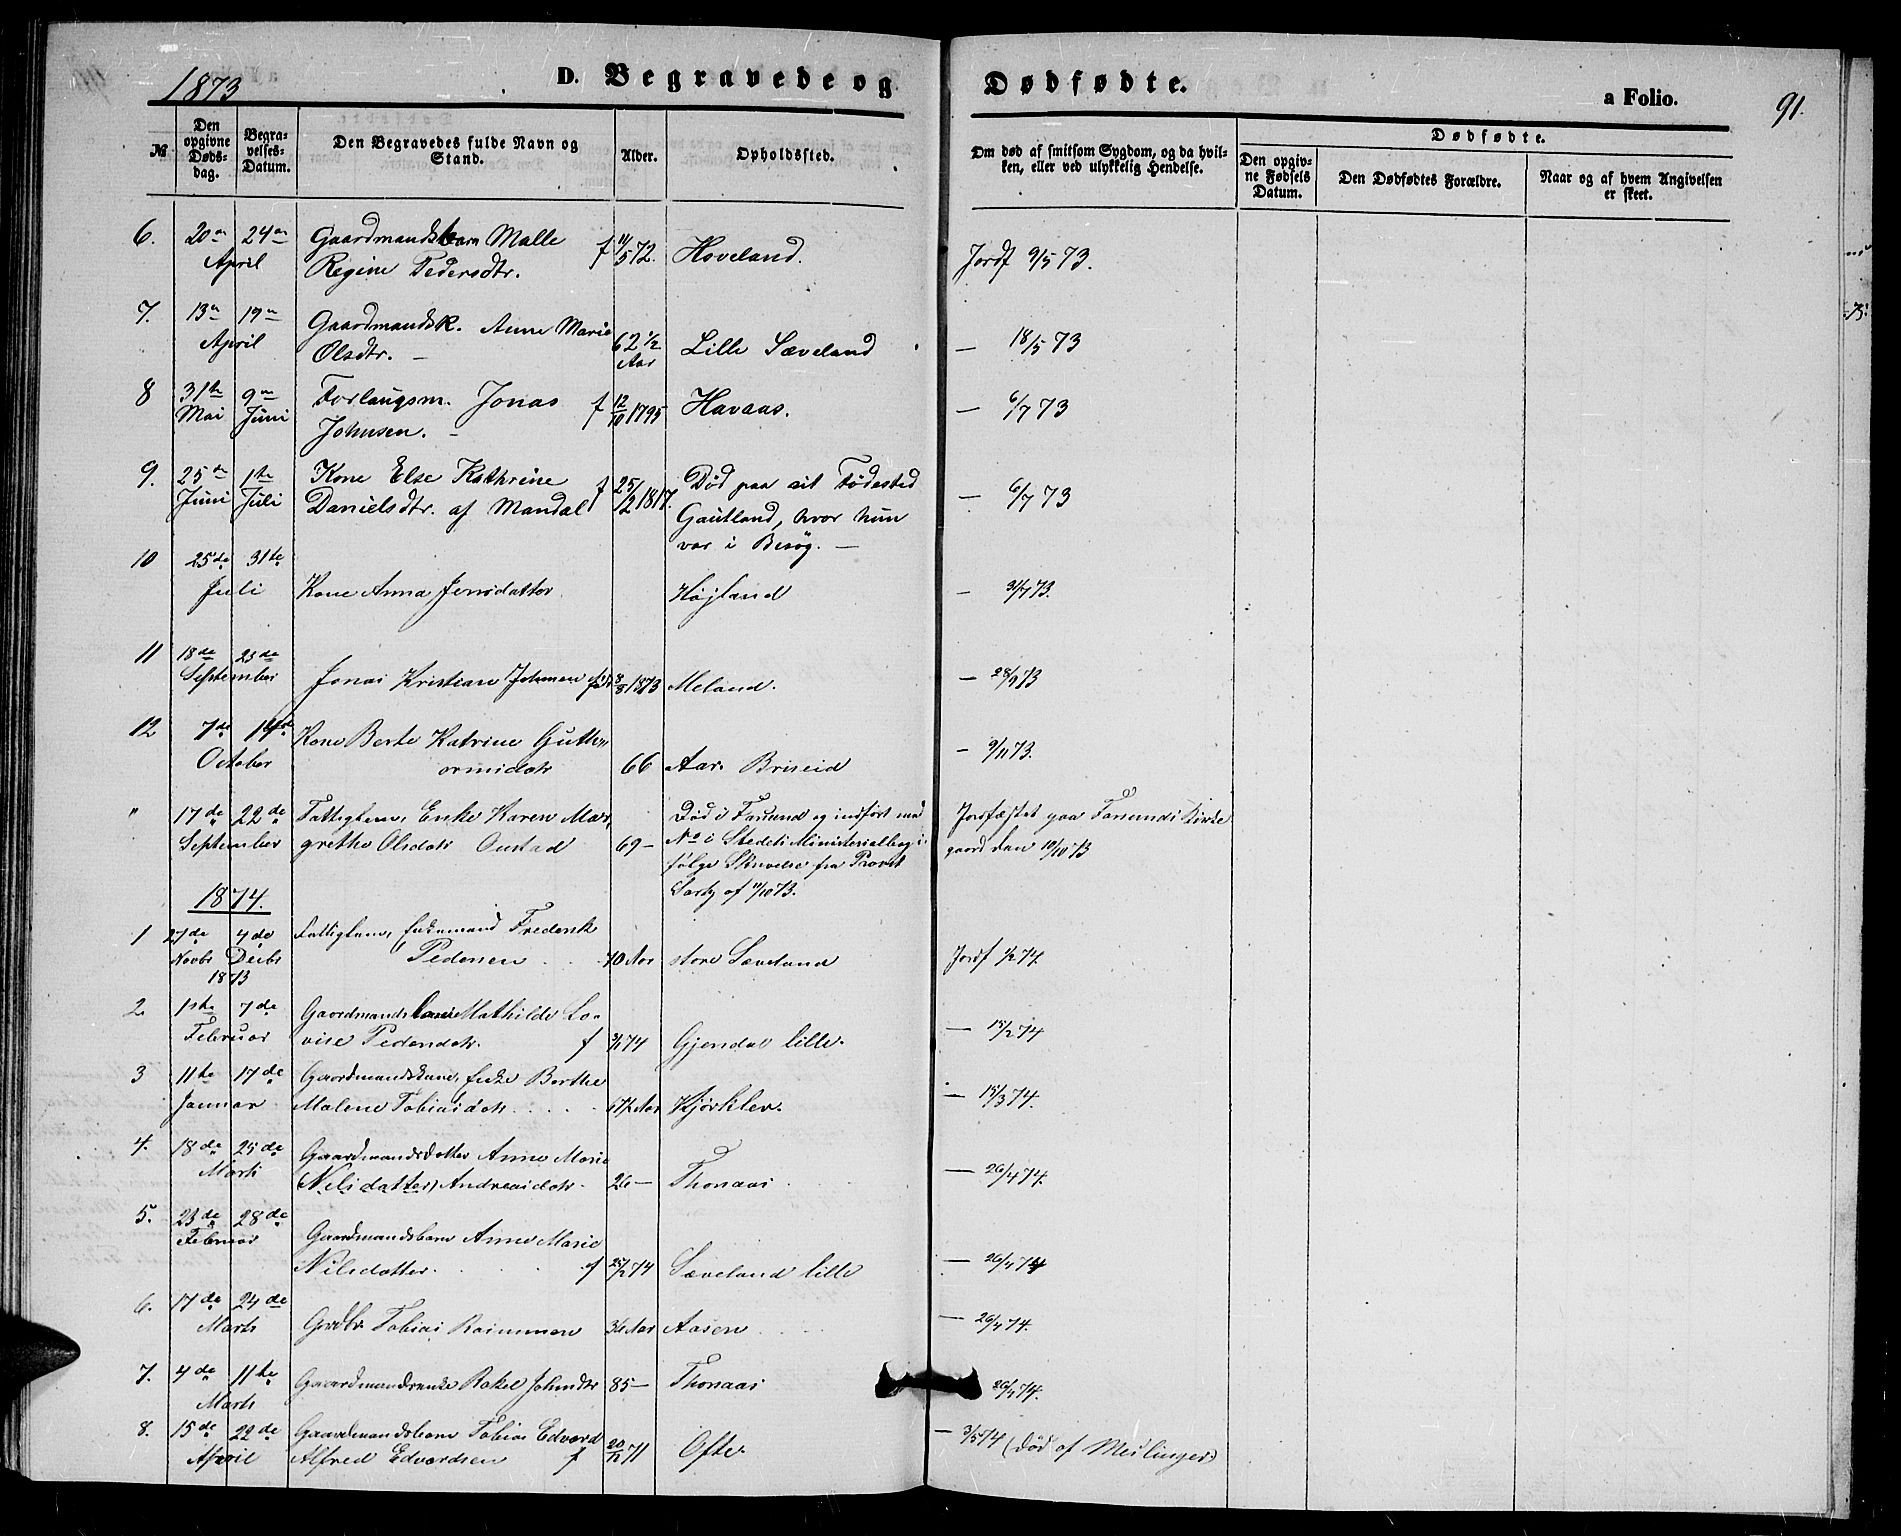 1873
D. Begravede og Dødfødte.
a Folio.
91.
№
Den opgivne Døds-dag.
Begra-velses-Datum.
Den Begravedes fulde Navn og Stand.
Alder.
Opholdssted.
Om død af smitsom Sygdom, og da hvil-ken, eller ved ulykkelig Hendelse.
Dødfødte.
Den opgiv-ne Fødsels Datum.
Den Dødfødtes Forældre.
Naar og af hvem Angivelsen er skeet.
6. 20de 24de Gaardmandsbarn Malle f 11/5 72. Hoveland. Jordf 9/5 73.
April Regine Pedersdtr.
7. 13de 19de Gaardmandsk. Anne Marie 62 1/2 Lille Sæveland — 18/5 73
April Olsdtr. — Aar
8 31te 9de Forlaugsm. Jonas f 12/10 1795 Havaas. — 6/7 73
Mai Juni Johnsen. —
9. 25de 1te Kone Else Kathrine f 25/12 1817. Død paa sit Fødested — 6/7 73
Juni Juli Danielsdtr. af Mandal Gautland, hvor hun
var i Besøg. —
10 25de 31te
Juli Kone Anna Jensdatter Højland — 31/7 73.
11 18de 23de
September Jonas Kristian Johnsen 8/8 1873 Meland. — 28/9 73
12 7de 14de Kone Berte Katrine Gutt-
October ormsdotr 66 Aar. Briseid — 9/11 73.
" 17de 22de Fattiglem, Enke Karen Mar- Død i Farsund og indført med Jordfæstet paa Farsunds Kirke
September grethe Olsdotr Oustad 69 — No i Stedets Ministerialbog i- gaard den 10/10 73
følge Skrivelse fra Provst
11/10 73.
1874.
1 27de 4de Fattiglem, Enkemand Frederik
Novbr Decbr Pedersen . . . 70 Aar store Sæveland Jordf 1/2 74.
1873
2. 1ste 7de Gaardmandsbarn Mathilde Lo-
Februar vise Pedersdotr. f 74 Gjendal lille. — 15/2 74
3 11te 17de Gaardmandskone, Enke Berthe
Januar Malene Tobiasdotr. . . . Aar Kjørklev. — 15/3 74.
4. 18de 25de Gaardmandsdotter Anne Marie
Marts (Nilsdatter) Andreasdotr. 26 — Thonaas . — 26/4 74.
5. 23de 28de
Februar Gaardmandsbarn Anne Marie
Nilsdatter. . . . f 25/2 74 Sæveland lille — 26/4 74
6. 17de 24de
Marts Grdbr Tobias Aar Aasen — 26/4 74.
7. 4de 11te Gaardmandsenke Rakel Johnsdtr 85 — Thonaas 26/4 74.
Marts
8. 15de 22de Gaardmandsbarn Tobias Edvard
April Alfred Edvardsen f 20/12 71 Ofte — 3/5 74 (død af Meslinger)